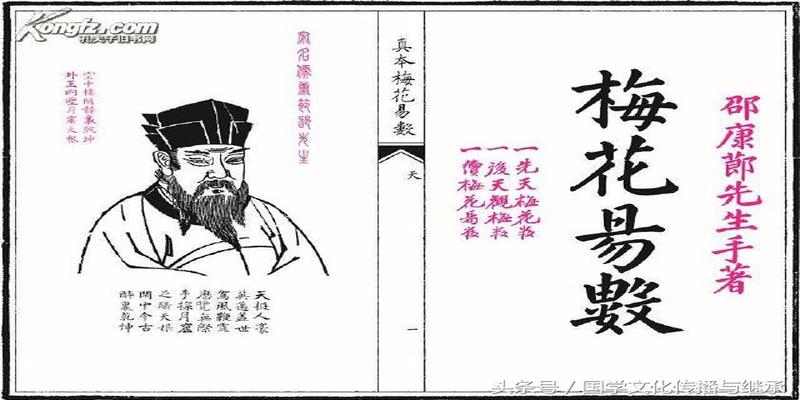 邵康節先生手著
梅花易數
一先天梅花数
一後天觀梅数
一價梅花易数
真本梅花易數
天
一
宋名儒康節邵先生
空中樓閣靜裏乾坤
外王內聖月窟天根
天挺人豪
英邁蓋世
駕風鞭霆
歷覽無際
手探月窟
足躡天根
閒中今古
醉裏乾坤
Kongfz.com
孔夫子旧书网
头条号/国学文化传播与继承